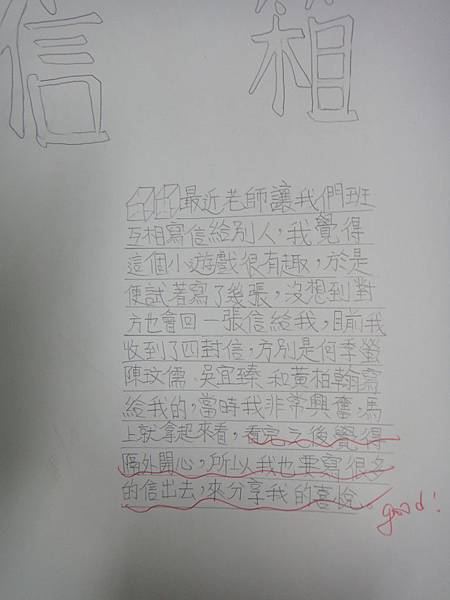 信箱
最近老師讓我們班
互相寫信給別人，我覺得
這個小遊戲很有趣，於是
便試著寫了幾張，沒想到對
方也會回一張信給我，目前我
收到了四封信，方別是何季螢
陳玟儒、吳宜臻和黃柏翰寫
給我的，當時我非常興奮，馬
上就拿起來看，看完之後覺得
隔外開心，所以我也要寫很多
的信出去，來分享我的喜悅。
good!